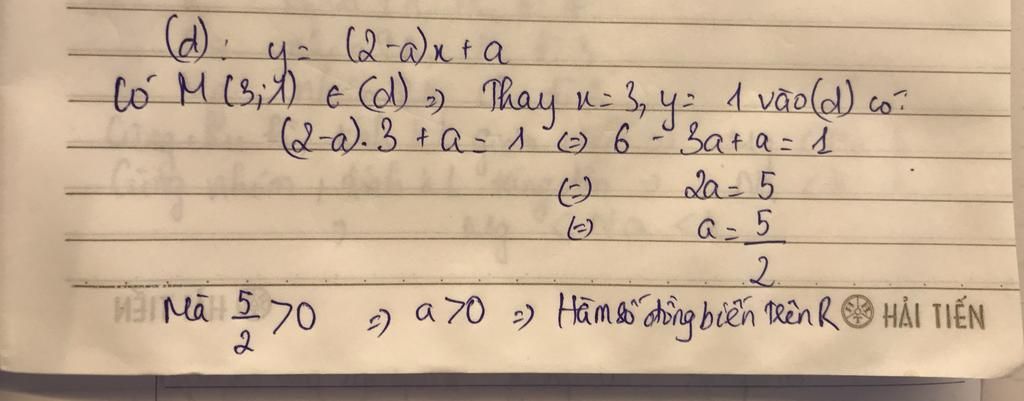 (d): y = (2-a)x + a
Có M (3;1) ∈ (d) => Thay x = 3, y = 1 vào (d) có:
(2-a).3 + a = 1 (=) 6 - 3a + a = 1
(=) 2a = 5
(=) a = 5/2
Mà 5/2 > 0 => a > 0 => Hàm số đồng biến trên R HẢI TIẾN